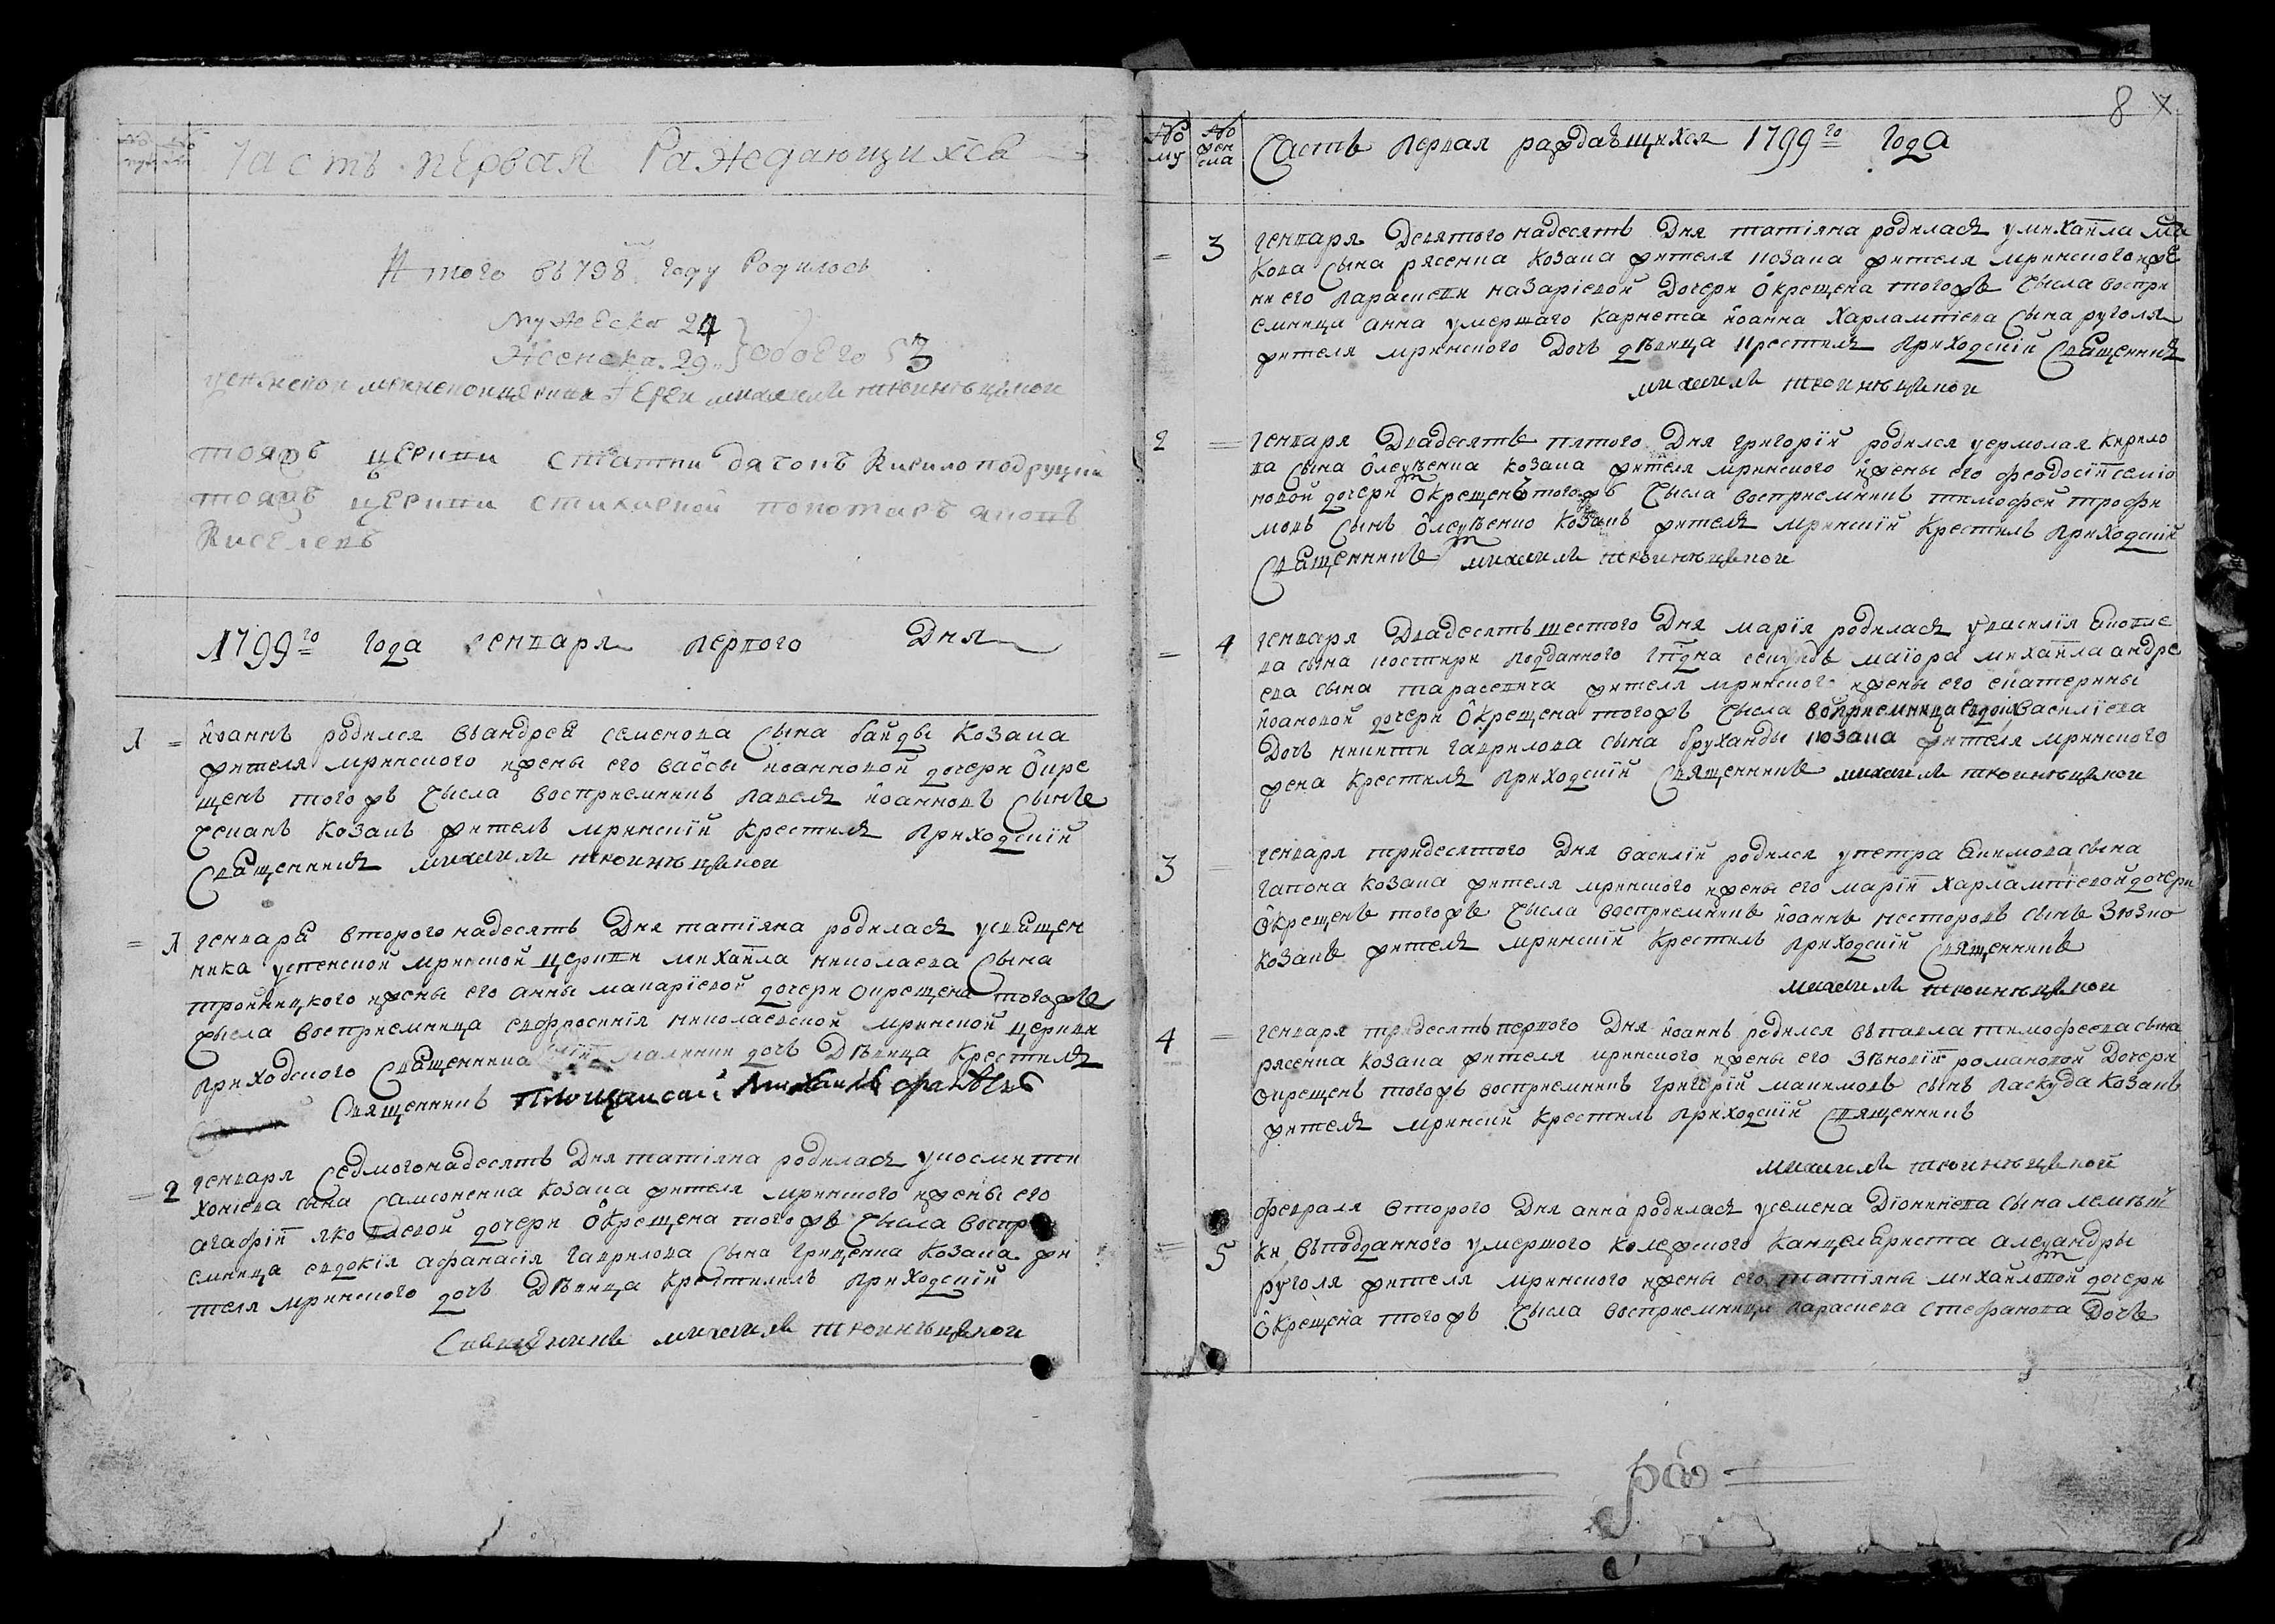 Часть первая Раждающихсѧ
Итого въ 798 году Родилось
Мужеска 24
Женска 29 } обоего 53
Успенской мринской церкви Іерей Михаилъ Троиницкой
тояжъ церкви діячокъ Кирило
тояжъ церкви стихарной понотарь
Киселевъ
1799го года генваря первого Дня
1 = иоаннъ родился въ андрея семенова сына байды козака
жителя мринского и жены его вассы иоанновой дочери окре
щенъ того жъ числа восприемникъ павелъ иоанновъ сынъ
чепанъ козакъ житель мринскій крестилъ приходскій
священникъ михаилъ троиницкой
= 1 генваря второгонадесять дня татіяна родилася у священ
ника успенской мринской церкви михаила николаева сына
тройницкого и жены его анны макаріевой дочери окрещена того же
числа восприемница евфросинія николаевской мринской церкви
приходского священника дочь дѣвица крестилъ
священникъ Михаилъ
= 2 генваря седмогонадесять дня татіяна родилася у космы ти
хонѣева сына самсоненка козака жителя мринского и жены его
агафіи яковлевой дочери окрещена того жъ числа воспри
емница евдокія афанасія гаврилова сына гриценка козака жи
теля мринского дочь дѣвица крестилъ приходскій
священникъ михаилъ троиницкой
8 7
No му No жен ска Часть первая раждающихся 1799го года
= 3 генваря девятогонадесять дня татіяна родилася у михаила
кова сына рясенка козака жителя козака жителя мринского и же
ни его параскеви назаріевой дочери окрещена того жъ числа воспри
емница анна умершаго карнета иоанна харлампіева сына руголя
жителя мринского дочь дѣвица крестилъ приходскій священникъ
михаилъ троиницкой
2 = генваря двадесять пятого дня григорій родился у ермолая кирило
ва сына олеѯѣенка козака жителя мринского и жены его феодосіи семіо
новой дочери окрещенъ того жъ числа восприемникъ тимофей трофи
мовъ сынъ олеѯѣенко козакъ житель мринскій крестилъ приходскій
священникъ михаилъ троиницкой
= 4 генваря двадесять шестого дня марія родилася у василія
ва сына костири подданного гпдна секундъ маіора михаила андре
ева сына тарасевича жителя мринского и жены его екатерины
иоановой дочери окрещена того жъ числа воприемница василіева
дочь никити гаврилова сына бруханды козака жителя мринского
жена крестилъ приходскій священникъ михаилъ троиницкой
3 = генваря тридесятого дня василій родился у петра екимова сына
гапона козака жителя мринского и жены его маріи харлампіевой дочери
окрещенъ того же числа восприемникъ иоаннъ несторовъ сынъ зюзко
козакъ житель мринскій крестилъ приходскій священникъ
михаилъ троиницкой
4 = генваря тридесять первого дня иоаннъ родился въ павла тимофеева сына
рясенка козака жителя мринского и жены его зѣновіи романовой дочери
окрещенъ того жъ восприемникъ григорій макимовъ сынъ паскуда козакъ
житель мринскій крестилъ приходскій священникъ
михаилъ троиницкой
= 5 февраля второго дня анна родилася у семена діонисіева сына
ки въ подданного умершого колежского канцеляриста алеѯандры
руголя жителя мринского и жены его татіяны михайловой дочери
окрещена того жъ числа восприемница параскева стефанова дочь